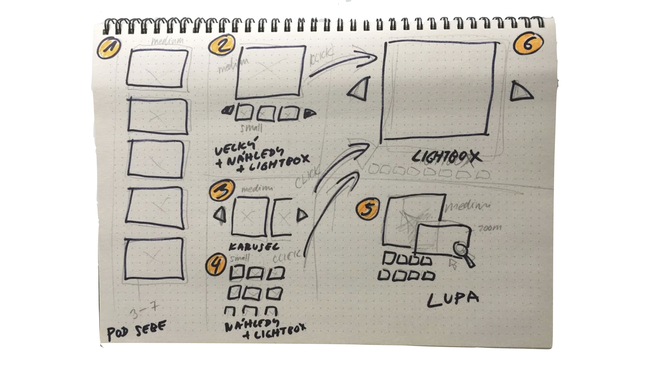 1
medium
3-7
POD SEBE
2
medium
CLICK
small
VELKÝ
+ NÁHLEDY
+ LIGHTBOX
3
medium
CLICK
KARUSEL
4
small
CLICK
NÁHLEDY
+ LIGHTBOX
6
LIGHTBOX
5
medium
zoom
LUPA